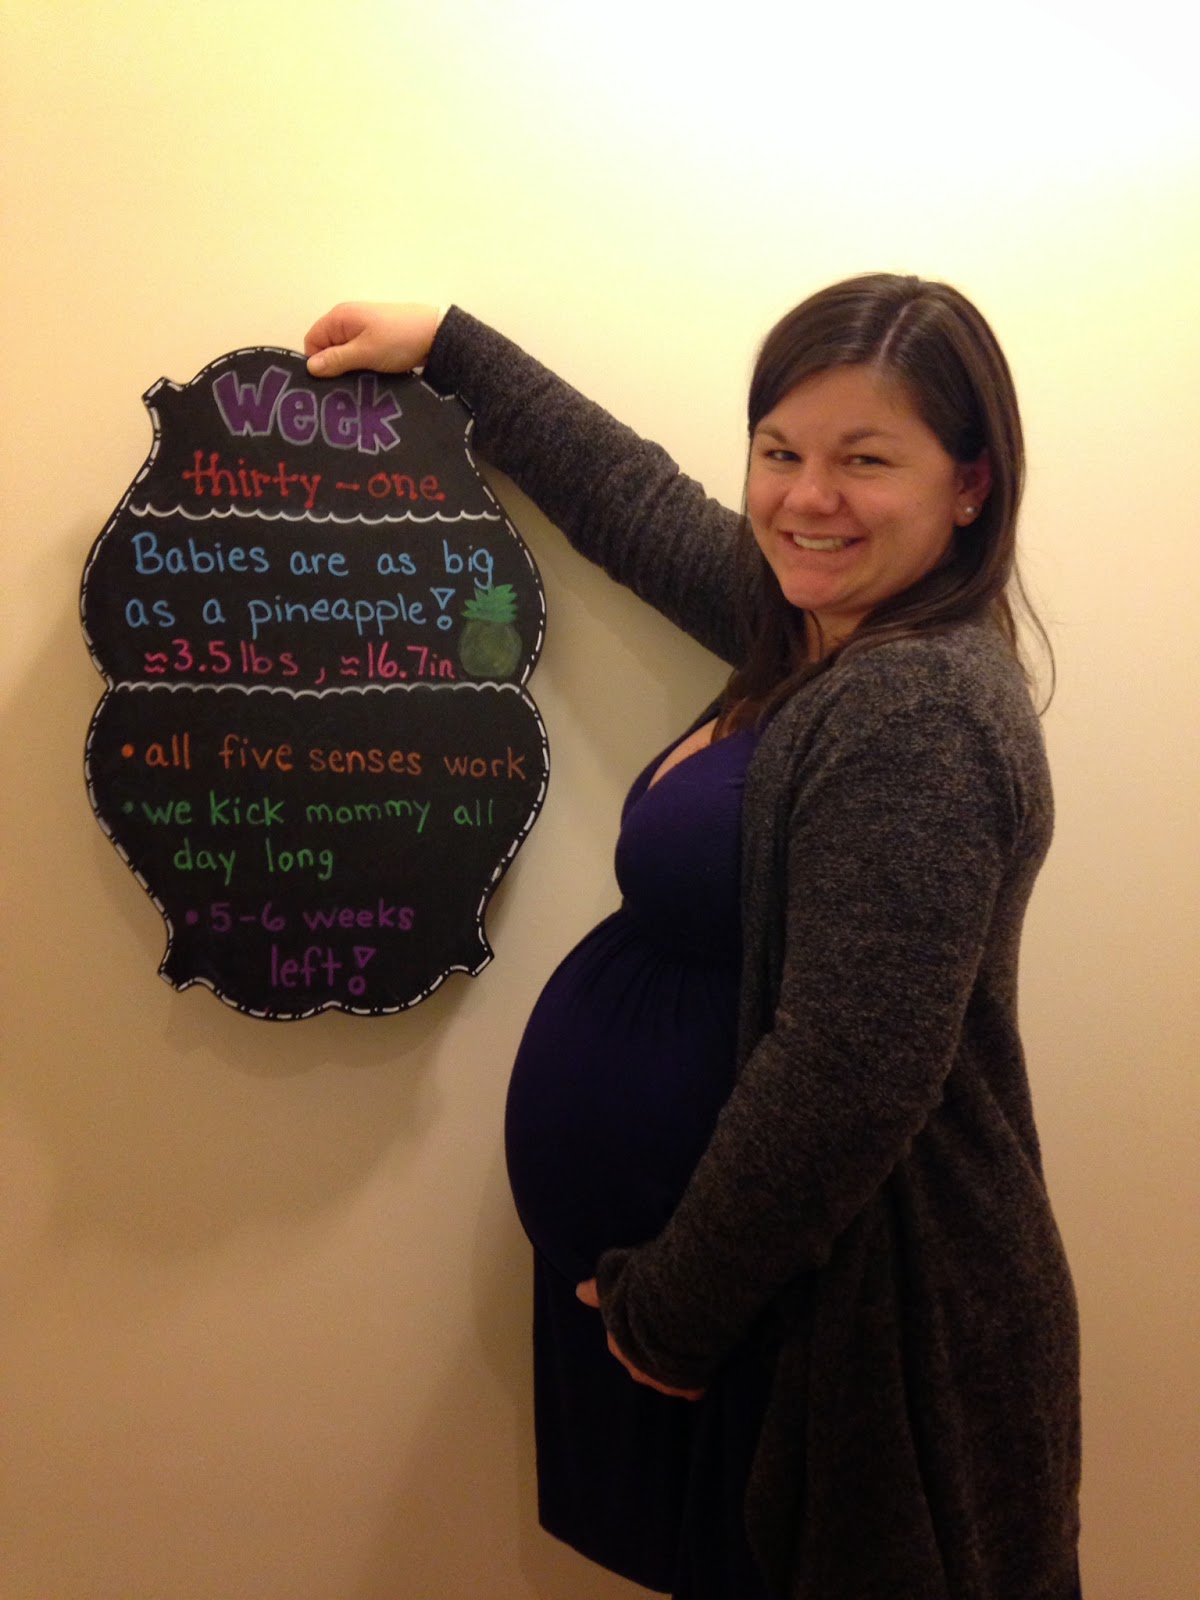 Week
thirty-one
Babies are as big
as a pineapple!
≈3.5lbs, ≈16.7in
• all five senses work
• we kick mommy all
day long
• 5-6 weeks
left!